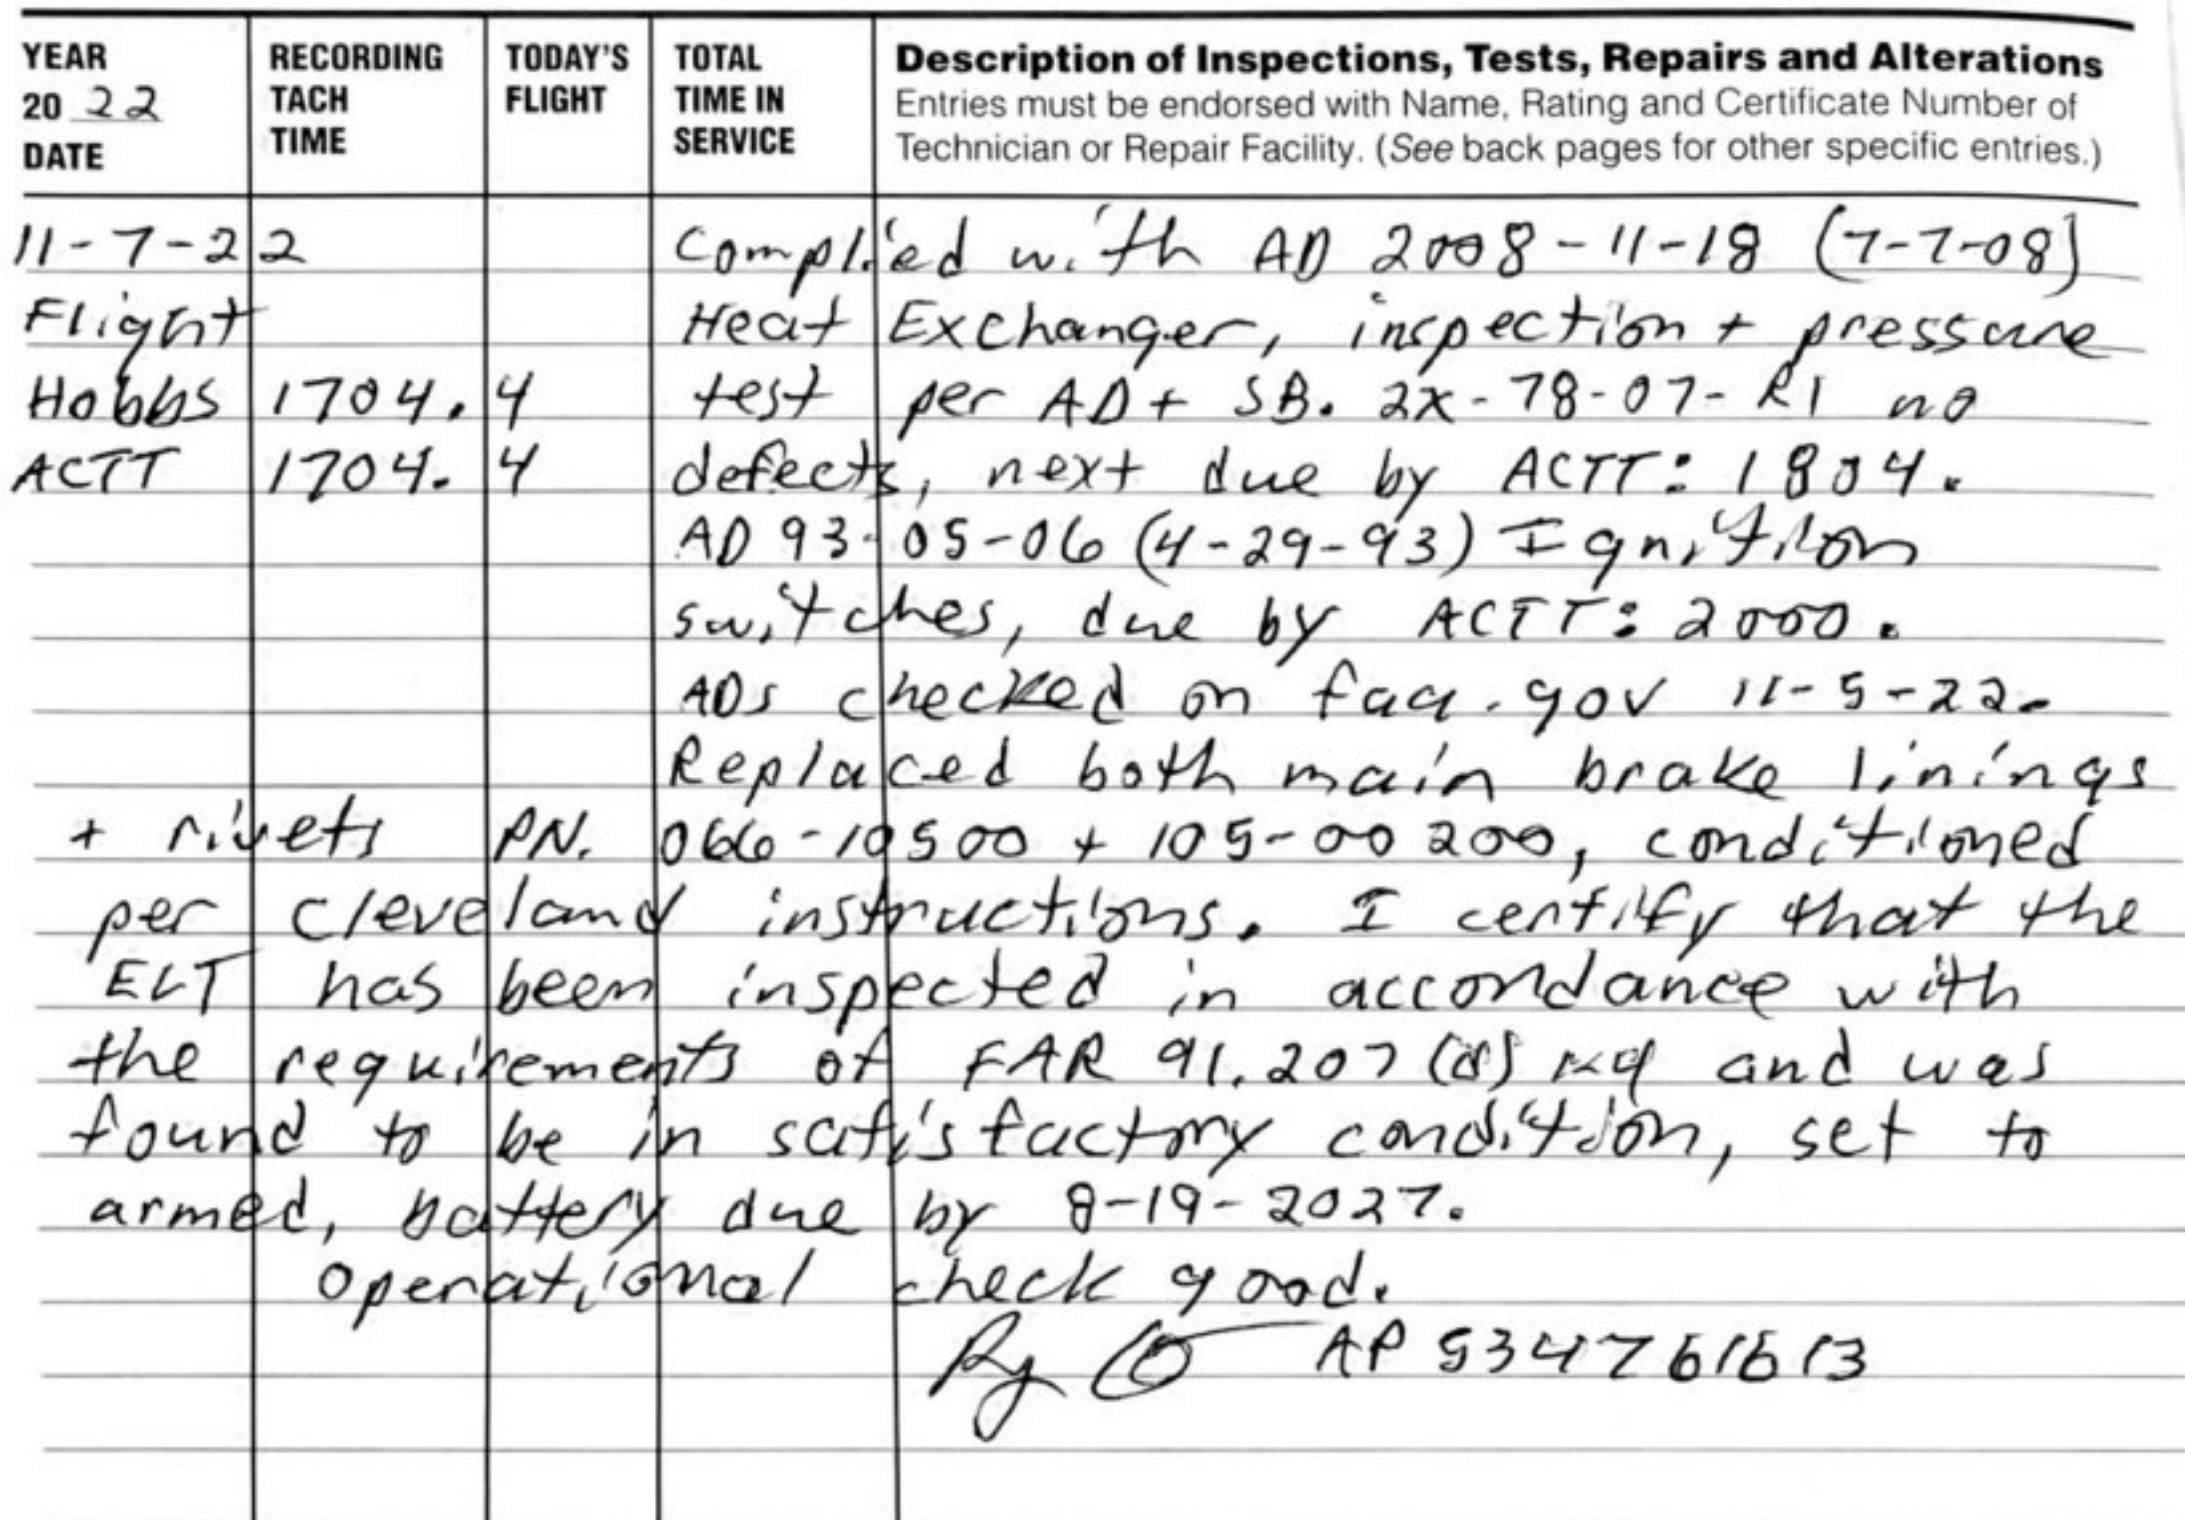 YEAR 20 22 DATE
RECORDING TACH TIME
TODAY'S FLIGHT
TOTAL TIME IN SERVICE
Description of Inspections, Tests, Repairs and Alterations
Entries must be endorsed with Name, Rating and Certificate Number of
Technician or Repair Facility. (See back pages for other specific entries.)
11-7-22 Complied with AD 2008-11-18 (7-7-08)
Flight Heat Exchanger, inspection + pressure
Hobbs 1704.4 test per AD + SB. 2X-78-07-R1 no
ACTT 1704.4 defects, next due by ACTT: 1804.
AD 93-05-06 (4-29-93) Ignition
switches, due by ACTT: 2000.
ADs checked on faa.gov 11-5-22.
Replaced both main brake linings
+ rivets PN. 066-10500 + 105-00200, conditioned
per Cleveland instructions. I certify that the
ELT has been inspected in accordance with
the requirements of FAR 91.207 (d) and was
found to be in satisfactory condition, set to
armed, battery due by 8-19-2027.
Operational check good.
AP 534761613